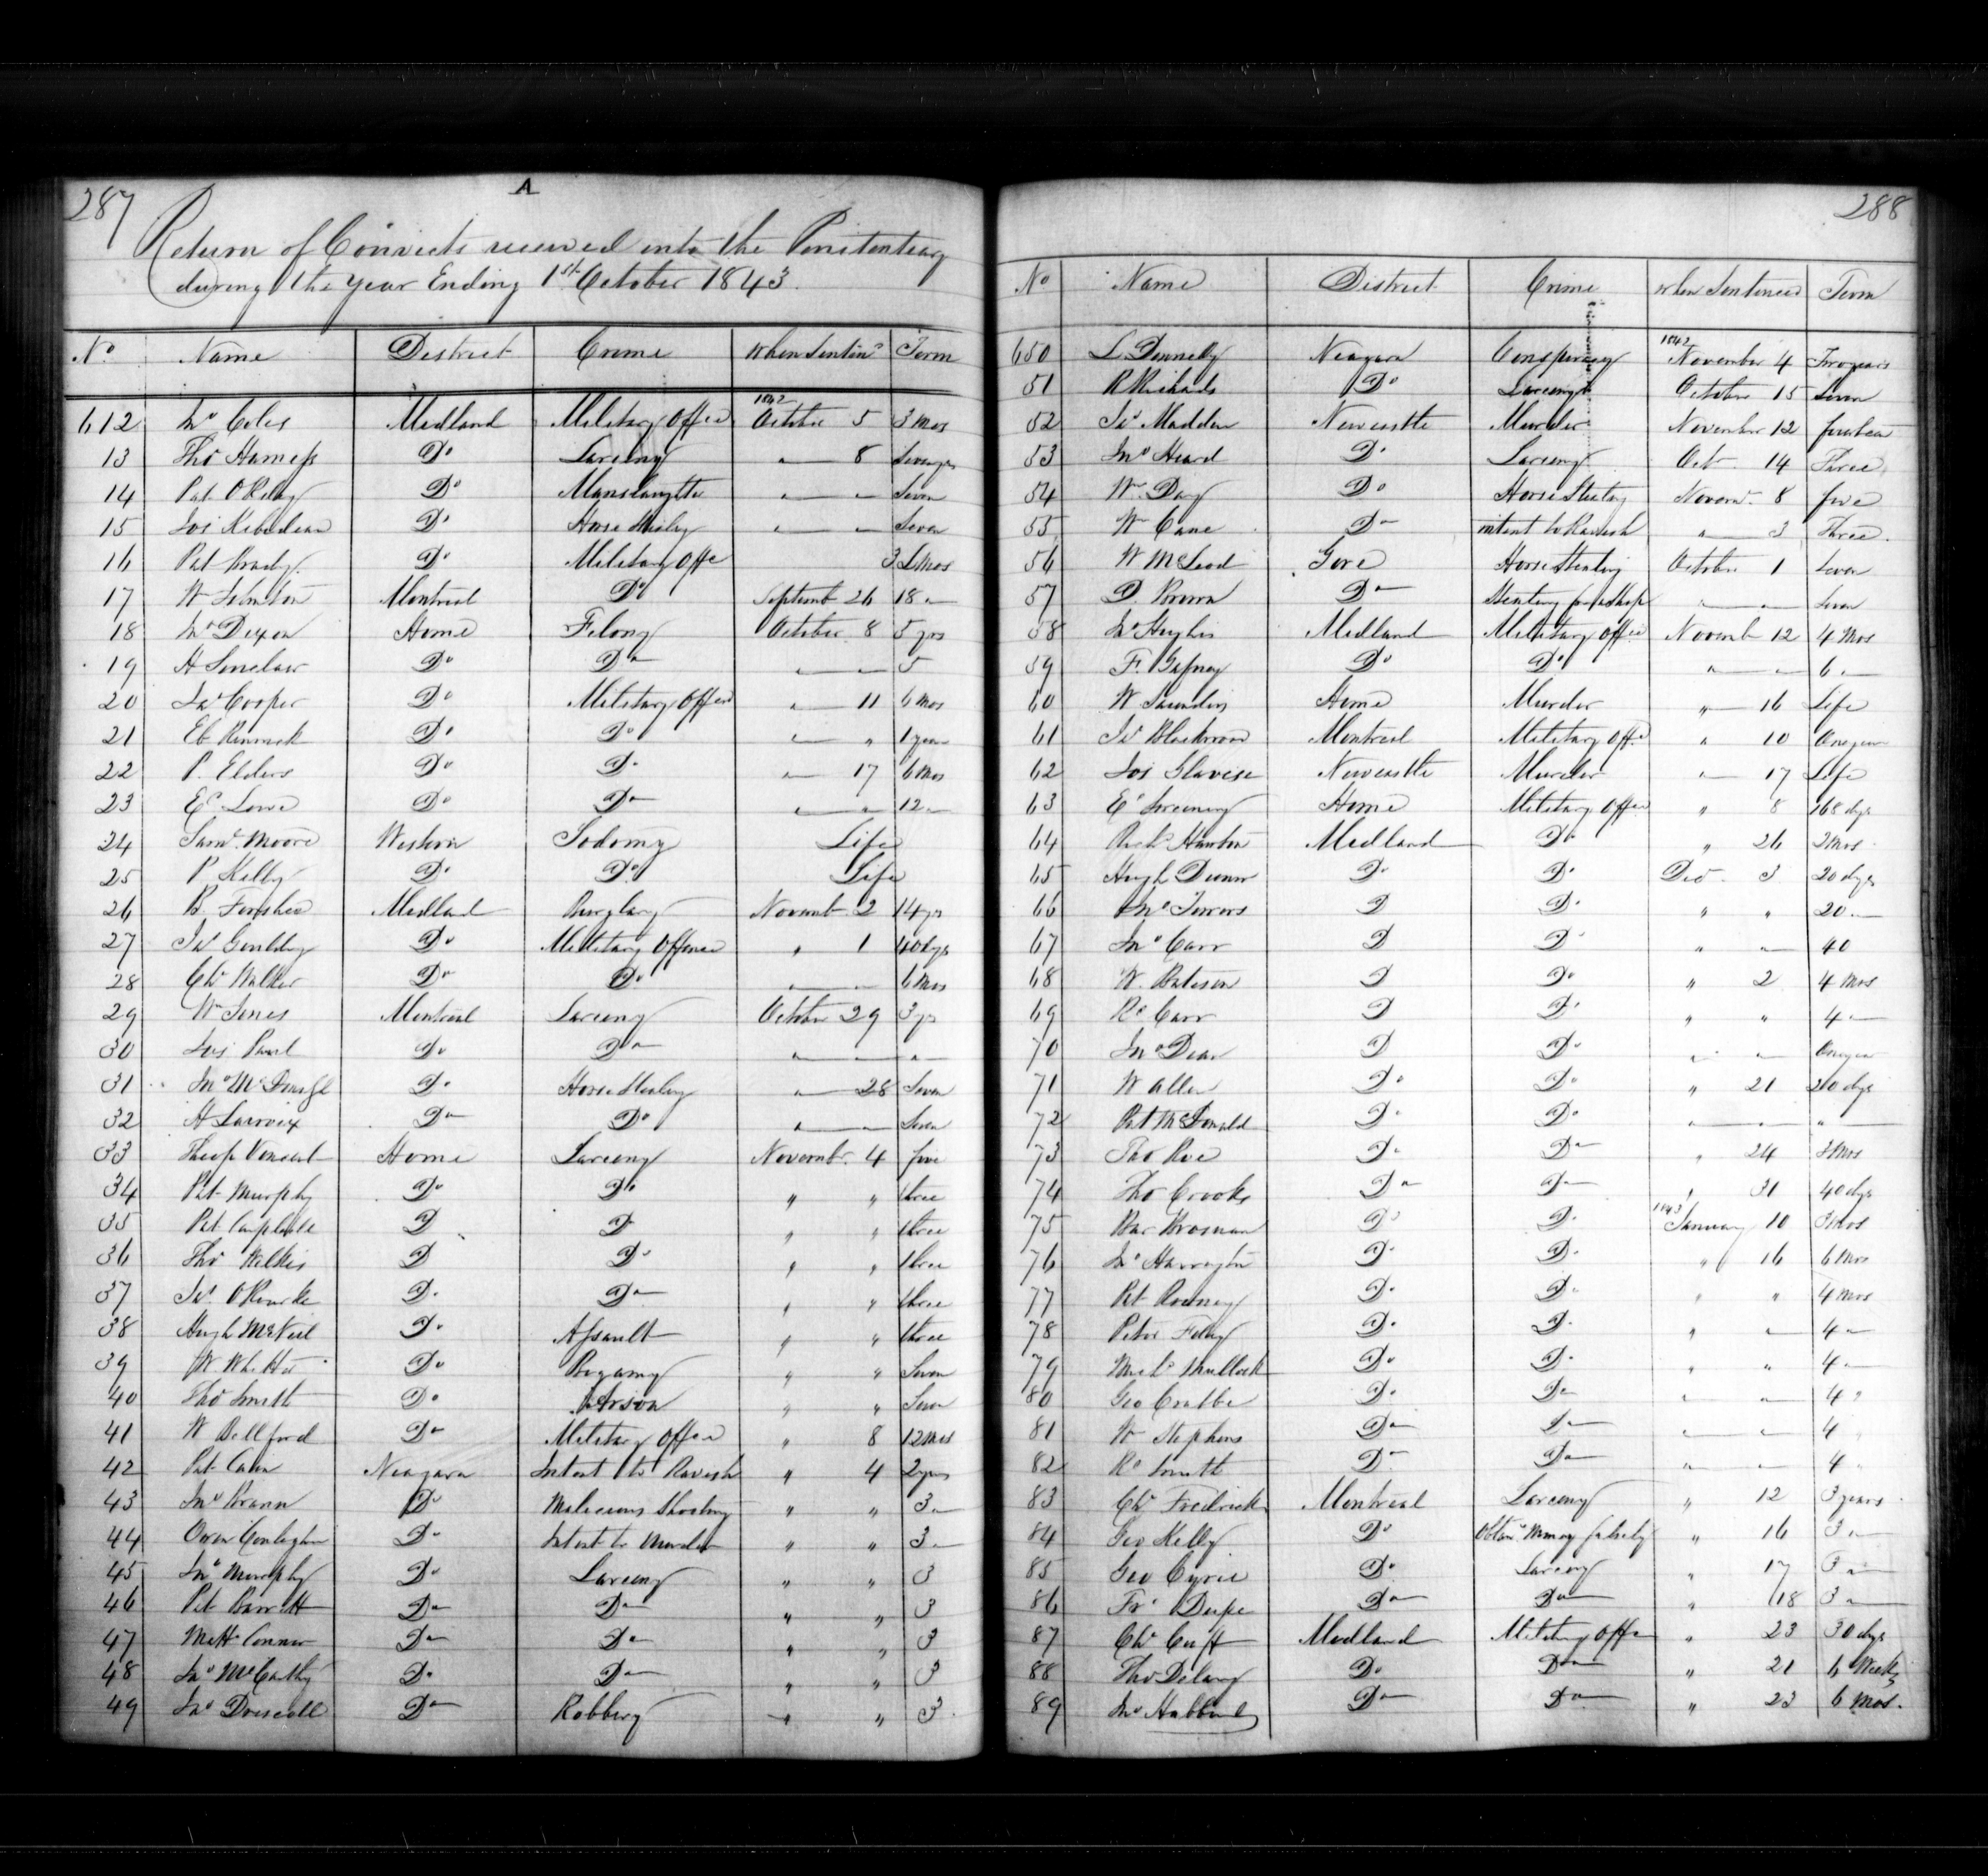 287
A
Return of Convicts received into the Penitentiary
during the year Ending 1st October 1843.
No Name District Crime When Sentind Term
612 Jno Coles Midland Military Offce 1842 October 5 3 Mos
13 Thos Harness Do Larceny " 8 Seven yrs
14 Pat O Reley Do Manslaughter " " Seven
15 Jos Do Horse Stealing " " Seven
16 Pat Brady Do Military Offe 3 Mos
17 Wm Johnston Montreal Do Septemb 26 18 "
18 Jno Dixon Home Felony October 8 5 yrs
19 H Sinclair Do Do " " 5
20 Jas Cooper Do Military Offen " 11 6 Mos
21 Eb Do Do " " 1 year
22 P. Elders Do Do " 17 6 Mos
23 Ed Lowe Do Do " " 12 "
24 Saml Moore Western Sodomy Life
25 P Kelly Do Do Life
26 B. Midland Burglary Novemb 2 14 yrs
27 Jas Do Military Offence " 1 40 dys
28 Chs Walker Do Do " " 6 Mos
29 Wm Jones Montreal Larceny October 29 3 yrs
30 Jos Paul Do Do " " "
31 Jno Do Horse Stealing " 28 Seven
32 H Larroix Do Do " " Seven
33 Theop Vincent Home Larceny Novembr. 4 five
34 Pat Murphy Do Do " " three
35 Pat Campbell D D " " three
36 Thos Wilkis D Do " " three
37 Jas. O Rourke D. Do " " three
38 Hugh McNeil D. Assault " " three
39 W. Do Bigamy " " Seven
40 Thos Smith Do Arson " " Seven
41 W Bellford Do Military Offen " 8 12 Mos
42 Pat Cain Niagara Intent to Ravish " 4 2 yrs
43 Jno Brann Do Malicious Shooting " " 3 "
44 Owen Do Intent to Murder " " 3 "
45 Jno Murphy Do Larceny " " 3
46 Pat Barrett Do Do " " 3
47 Matt Connor Do Do " " 3
48 Jno McCarthy Do Do " " 3
49 Jno Driscoll Do Robbery " " 3
288
No Name District Crime When Sentenced Term
650 L. Donnelly Niagara Conspiracy 1842 November 4 Two years
51 R Richards Do Larceny October 15 Seven
52 Jas Madden Newcastle Murder November 12 fourteen
53 Jno Heard Do Larceny Oct. 14 Three
54 Wm Day Do Horse Stealing Novemr. 8 five
55 Wm Cane Do intent to Ravish " 3 Three
56 W McLeod Gore Horse Stealing October 1 Seven
57 D. Brown Do Stealing from Shop " " Seven
58 Jno Hughes Midland Military Offce Novemb 12 4 Mos
59 F. Gafney Do Do " " 6 "
60 W Saunders Home Murder " 16 Life
61 Jas Blackwood Montreal Military Offe " 10 One year
62 Jos Newcastle Murder " 17 Life
63 Ed Home Military Offen " 8 168 dys
64 Richd Midland Do " 26 2 Mos
65 Hugh Do Do Dec. 3 20 dys
66 Jno D Do " " 20 "
67 Jno Carr D Do " " 40
68 W. Bateson D Do " 2 4 Mos
69 Rd Carr D Do " " 4 "
70 Jno Dean D Do " " One year
71 W Allen Do Do " 21 20 dys
72 Pat McDonald Do Do " " "
73 Thos Roe Do Do " 24 3 Mos
74 Thos Crooks Do Do " 31 40 dys
75 Bar Brosnan Do Do 1843 January 10 3 Mos
76 Jno Harrington Do Do " 16 6 Mos
77 Pat Rooney Do Do " " 4 Mos
78 Peter Do Do " " 4 "
79 Michl Mullock Do Do " " 4 "
80 Geo Crabbe Do Do " " 4 "
81 Wm Stephens Do Do " " 4 "
82 Rd Smith Do Do " " 4 "
83 Chs Fredrick Montreal Larceny " 12 3 years
84 Geo Kelly Do Obtang Money falsely " 16 3 "
85 Geo Cyrie Do Larceny " 17 3 "
86 Frs Dupe Do Do " 18 3 "
87 Chs Cuff Midland Military Offe " 23 30 dys
88 Thos Delany Do Do " 21 6 Weeks
89 Jno Hubbard Do Do " 23 6 Mos.